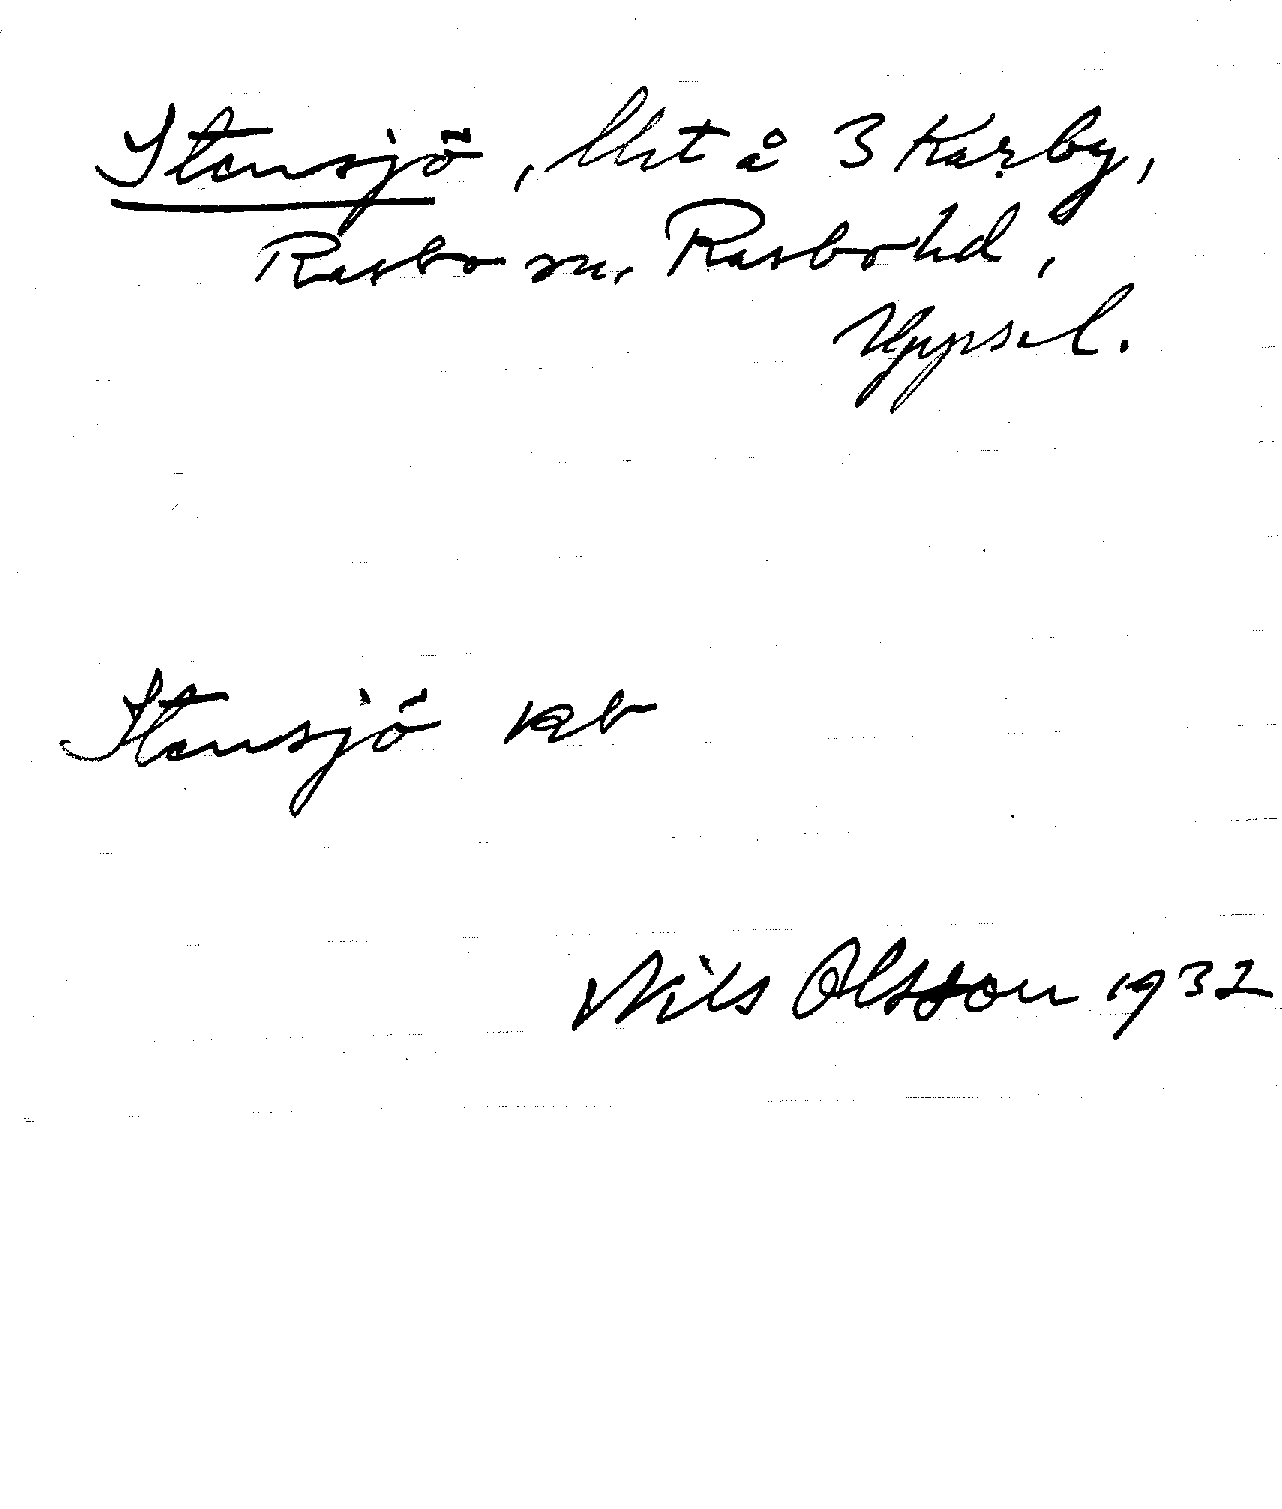 Stensjö, lht å 3 Karby,
Rasbo sn, Rasbo hd,
Uppsal.
Stensjö kb
Nils Olsson 1932